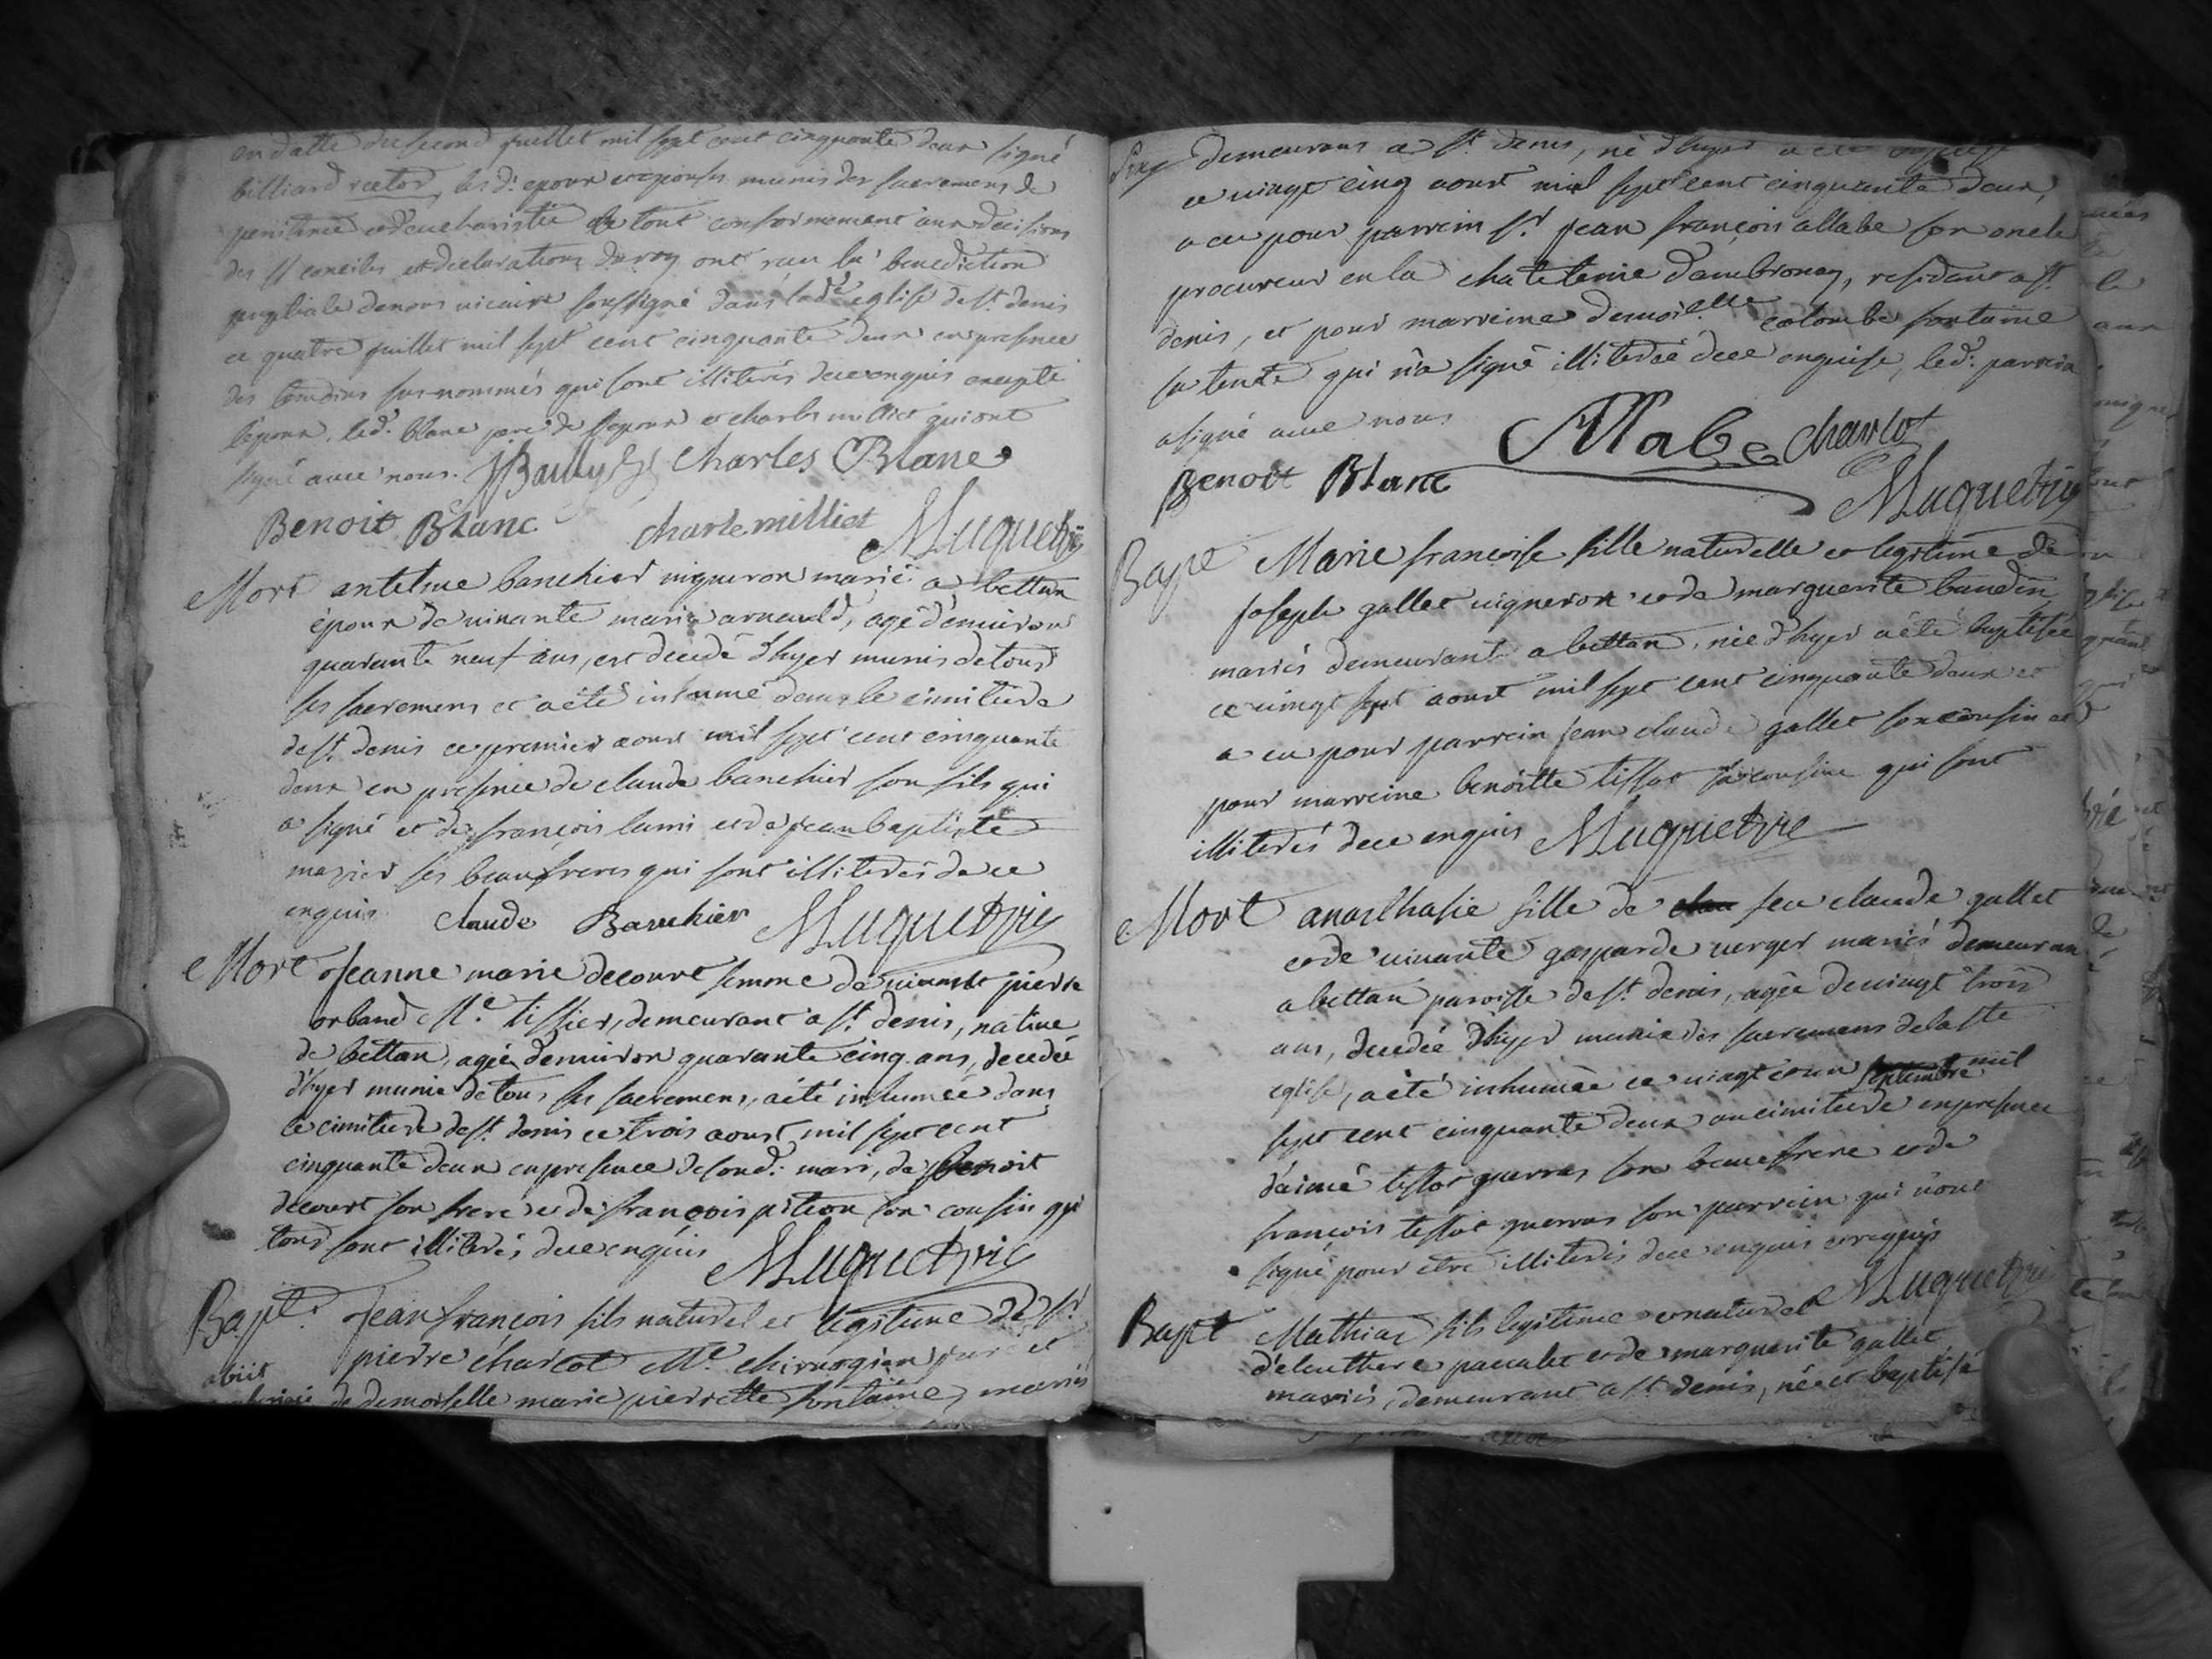 en datte du second juillet mil sept cent cinquante deux signé
billiard rector, les d. epoux et epouse munis des sacremens de
penitence et d'eucharistie le tout conformement aux decisions
des Sts conciles et declarations du roy ont recu la benediction
nuptiale de nous vicaire soussigné dans lad. eglise de st. denis
ce quatre juillet mil sept cent cinquante deux en presence
des temoins sus nommés qui sont illiterés de ce enquis excepté
l'epoux, led. blanc pere de l'epoux et charles milliet qui ont
signé avec nous. Charles Blanc
Benoit Blanc charle milliet Muguet vic
Mort antelme bauchier vigneron marié a bettan
époux de vivante marie arnauld, agé d'environ
quarante neuf ans, est decedé d'hyer munis de tous
ses sacremens et a été inhumé dans le cimitiere
de st. denis ce premier aoust mil sept cent cinquante
deux en presence de claude bauchier son fils qui
a signé et de françois lumi et de jean baptiste
mazier ses beaufreres qui sont illiterés de ce
enquis claude Bauchier Muguet vic
Mort Jeanne marie decourt femme de vivant pierre
orband Me. tissier, demeurant a st. denis, native
de bettan, agée d'environ quarante cinq ans, decedée
d'hyer munie de tous ses sacremens, a été inhumée dans
le cimitiere de st. denis ce trois aoust mil sept cent
cinquante deux en presence de sond. mari, de benoit
decourt son frere et de françois pitiou son cousin qui
tous sont illiterés de ce enquis Muguet vic
Bapt. Jean françois fils naturel et legitime de Sr
pierre charlot Me. chirurgien juré et
abiit
de demoiselle marie pierrette fontaine, mariés
demeurans a st. denis, né d'hyer a été
ce vingt cinq aoust mil sept cent cinquante deux,
a eu pour parrein Sr. jean françois allabe son oncle
procureur en la chatelenie d'ambronay, residant a st.
denis, et pour marreine demoiselle colombe fontaine
sa tente qui n'a signé illiterée de ce enquise, led. parrein
a signé avec nous Allabe charlot
Benoit Blanc Muguet vic
Bapt Marie françoise fille naturelle et legitime de
joseph gallet vigneron et de marguerite baudin
mariés demeurant a bettan, née d'hyer a été baptisée
ce vingt sept aoust mil sept cent cinquante deux et
a eu pour parrein jean claude gallet son cousin et
pour marreine benoitte tissot sa cousine qui sont
illiterés de ce enquis Muguet vic
Mort anasthasie fille de feu claude gallet
et de vivante gasparde verger mariés demeuran
a bettan paroisse de st. denis, agée de vingt trois
ans, decedée d'hyer munie des sacremens de la ste
eglise, a été inhumée ce vingt et un septembre mil
sept cent cinquante deux au cimitiere en presence
d'aimé tissot guerras son beaufrere et de
françois tissot guerras son parrein qui n'ont
signé pour etre illiterés de ce enquis et requis
Muguet vic
Bapt Mathias fils legitime et naturel
d'eleuthere pauralet et de marguerite gallet
mariés, demeurant a st. denis, né et baptisé